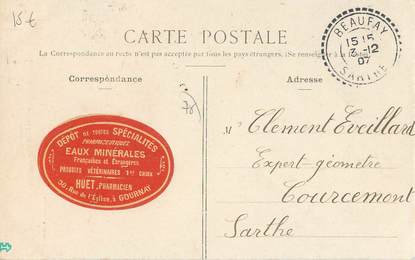 15 €
CARTE POSTALE
La Correspondance au recto n'est pas acceptée par tous les pays étrangers. (Se renseigner
Correspondance
Adresse
BEAUFAY
15 15
3-12
07
SARTHE
78
DÉPÔT DE TOUTES SPÉCIALITÉS
PHARMACEUTIQUES
EAUX MINÉRALES
Françaises et Étrangères
PRODUITS VÉTÉRINAIRES 1er CHOIX
HUET, PHARMACIEN
30, Rue de l'Église, à GOURNAY
M Clement Eveillard
Expert géomètre
Courcemont
Sarthe